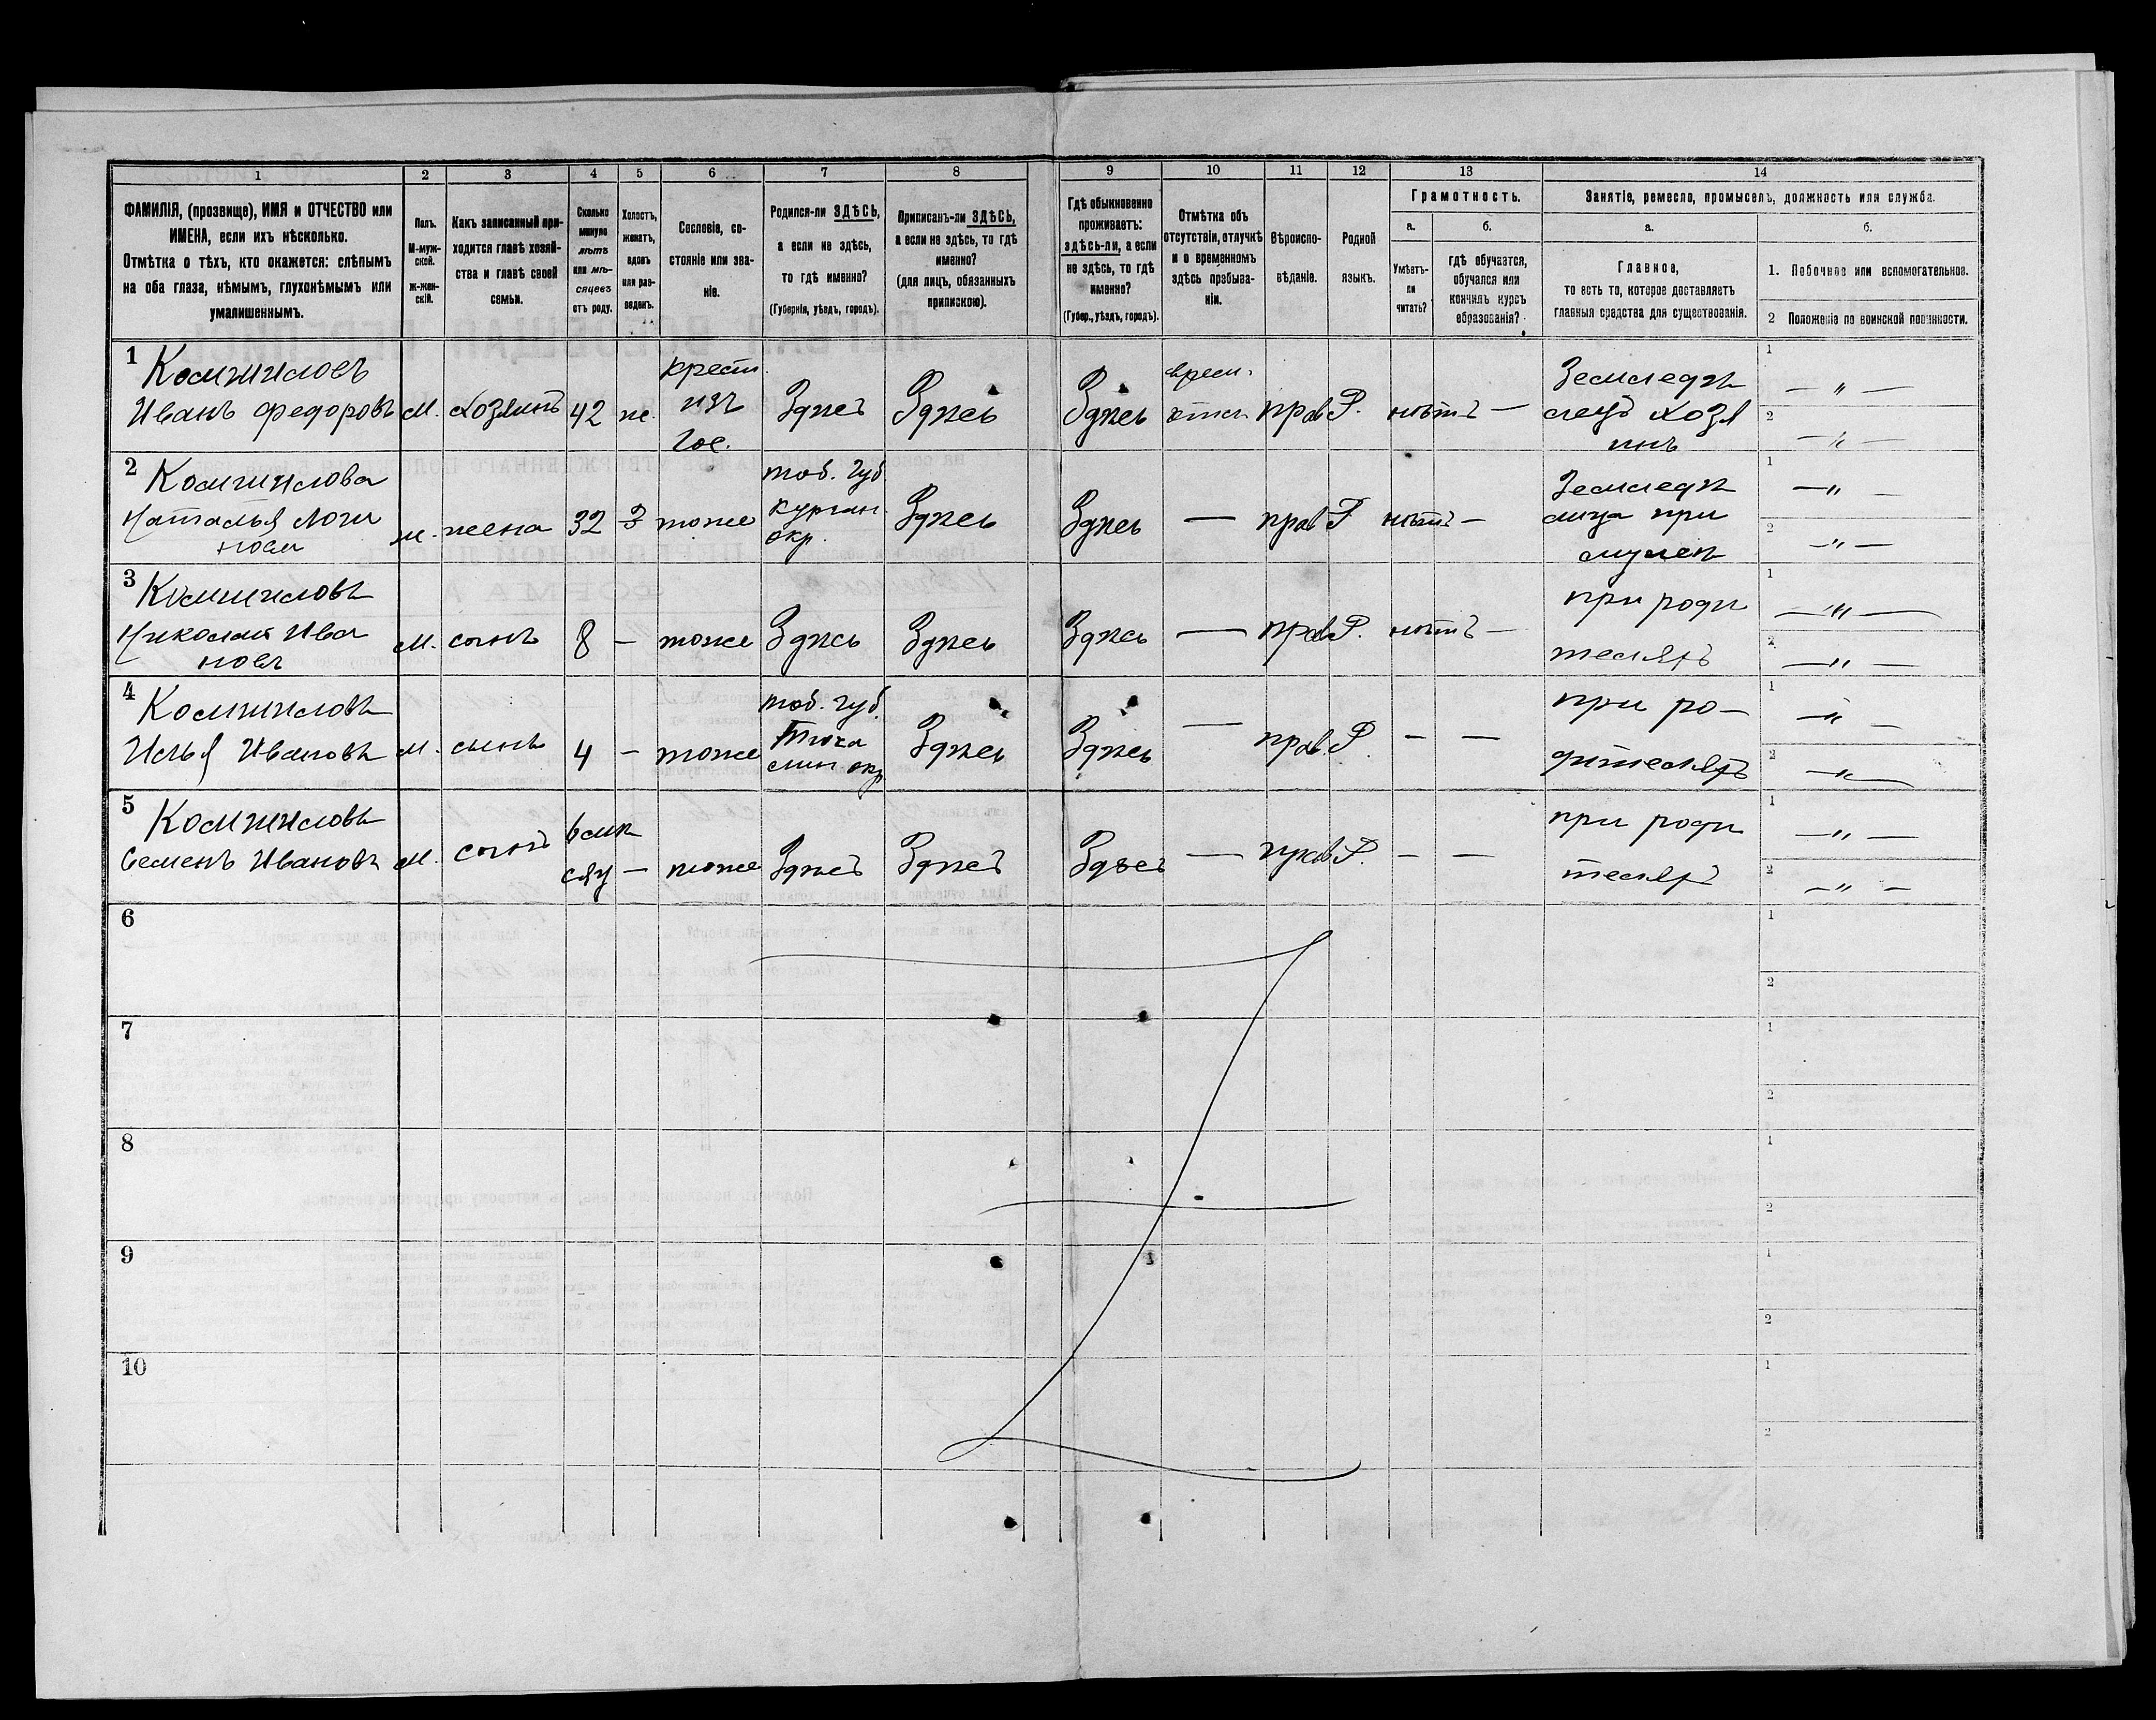 1 2 3 4 5 6 7 8 9 10 11 12 13 14
ФАМИЛІЯ, (прозвище), ИМЯ и ОТЧЕСТВО или
ИМЕНА, если ихъ нѣсколько.
Отмѣтка о тѣхъ, кто окажется: слѣпымъ
на оба глаза, нѣмымъ, глухонѣмымъ или
умалишеннымъ.
Полъ.
М-муж-
ской.
ж-жен-
скій.
Какъ записанный при-
ходится главѣ хозяй-
ства и главѣ своей
семьи.
Сколько
минуло
лѣтъ
или мѣ-
сяцевъ
отъ роду.
Холостъ,
женатъ,
вдовъ
или раз-
веденъ.
Сословіе, со-
стояніе или зва-
ніе.
Родился-ли ЗДѢСЬ,
а если не здѣсь,
то гдѣ именно?
(Губернія, уѣздъ, городъ).
Приписанъ-ли ЗДѢСЬ,
а если не здѣсь, то гдѣ
именно?
(для лицъ, обязанныхъ
припискою).
Гдѣ обыкновенно
проживаетъ:
здѣсь-ли, а если
не здѣсь, то гдѣ
именно?
(Губер., уѣздъ, городъ).
Отмѣтка объ
отсутствіи, отлучкѣ
и о временномъ
здѣсь пребыва-
ніи.
Вѣроиспо-
вѣданіе.
Родной
языкъ.
Грамотность.
а.
Умѣетъ-
ли
читать?
б.
гдѣ обучается,
обучался или
кончилъ курсъ
образованія?
Занятіе, ремесло, промыселъ, должность или служба.
а.
Главное,
то есть то, которое доставляетъ
главныя средства для существованія.
б.
1. Побочное или вспомогательное.
2 Положеніе по воинской повинности.
1
Иванъ Федоровъ
м.
хозяинъ
42
ж.
крест.
изъ
гос.
Здѣсь
Здѣсь
Здѣсь
врем.
отл.
прав
Р.
нѣтъ
—
Земледѣ
лецъ хозя
инъ
1 — „ —
2 — „ —
2
Наталья Логи
нова
ж.
жена
32
З
тоже
тоб. губ
курган.
окр.
Здѣсь
Здѣсь
—
прав
Р
нѣтъ
—
Земледѣ
лица при
мужѣ
1 — „ —
2 — „ —
3
Николай Ива
новъ
м.
сынъ
8
—
тоже
Здѣсь
Здѣсь
Здѣсь
—
прав
Р.
нѣтъ
—
при роди
теляхъ
1 — „ —
2 — „ —
4
Илья Ивановъ
м.
сынъ
4
—
тоже
тоб. губ.
окр
Здѣсь
Здѣсь
—
прав.
Р.
—
—
при ро-
дителяхъ
1 — „ —
2 — „ —
5
Семенъ Ивановъ
м.
сынъ
6 мѣ
сяц
—
тоже
Здѣсь
Здѣсь
Здѣсь
—
прав
Р.
—
—
при роди
теляхъ
1 — „ —
2 — „ —
6
1
2
7
1
2
8
1
2
9
1
2
10
1
2